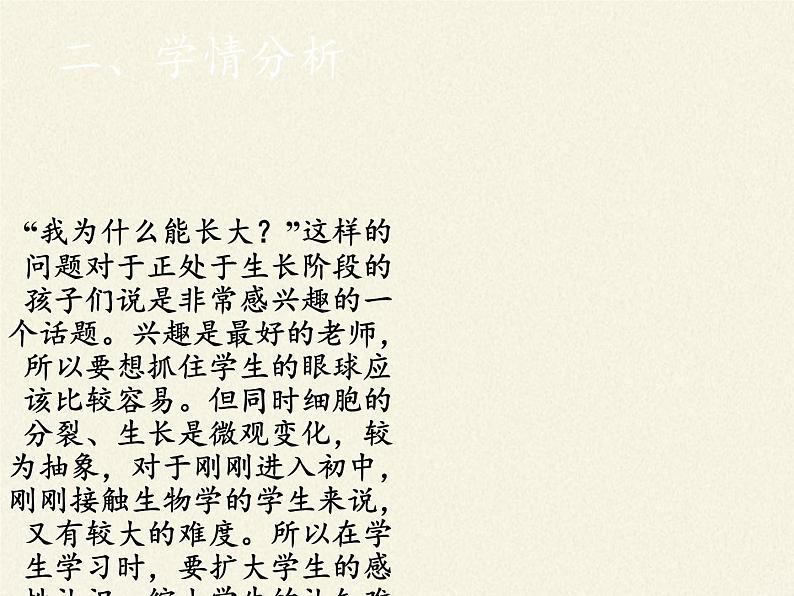 二、学情分析
“我为什么能长大？”这样的
问题对于正处于生长阶段的
孩子们说是非常感兴趣的一
个话题。兴趣是最好的老师，
所以要想抓住学生的眼球应
该比较容易。但同时细胞的
分裂、生长是微观变化，较
为抽象，对于刚刚进入初中，
刚刚接触生物学的学生来说，
又有较大的难度。所以在学
生学习时，要扩大学生的感